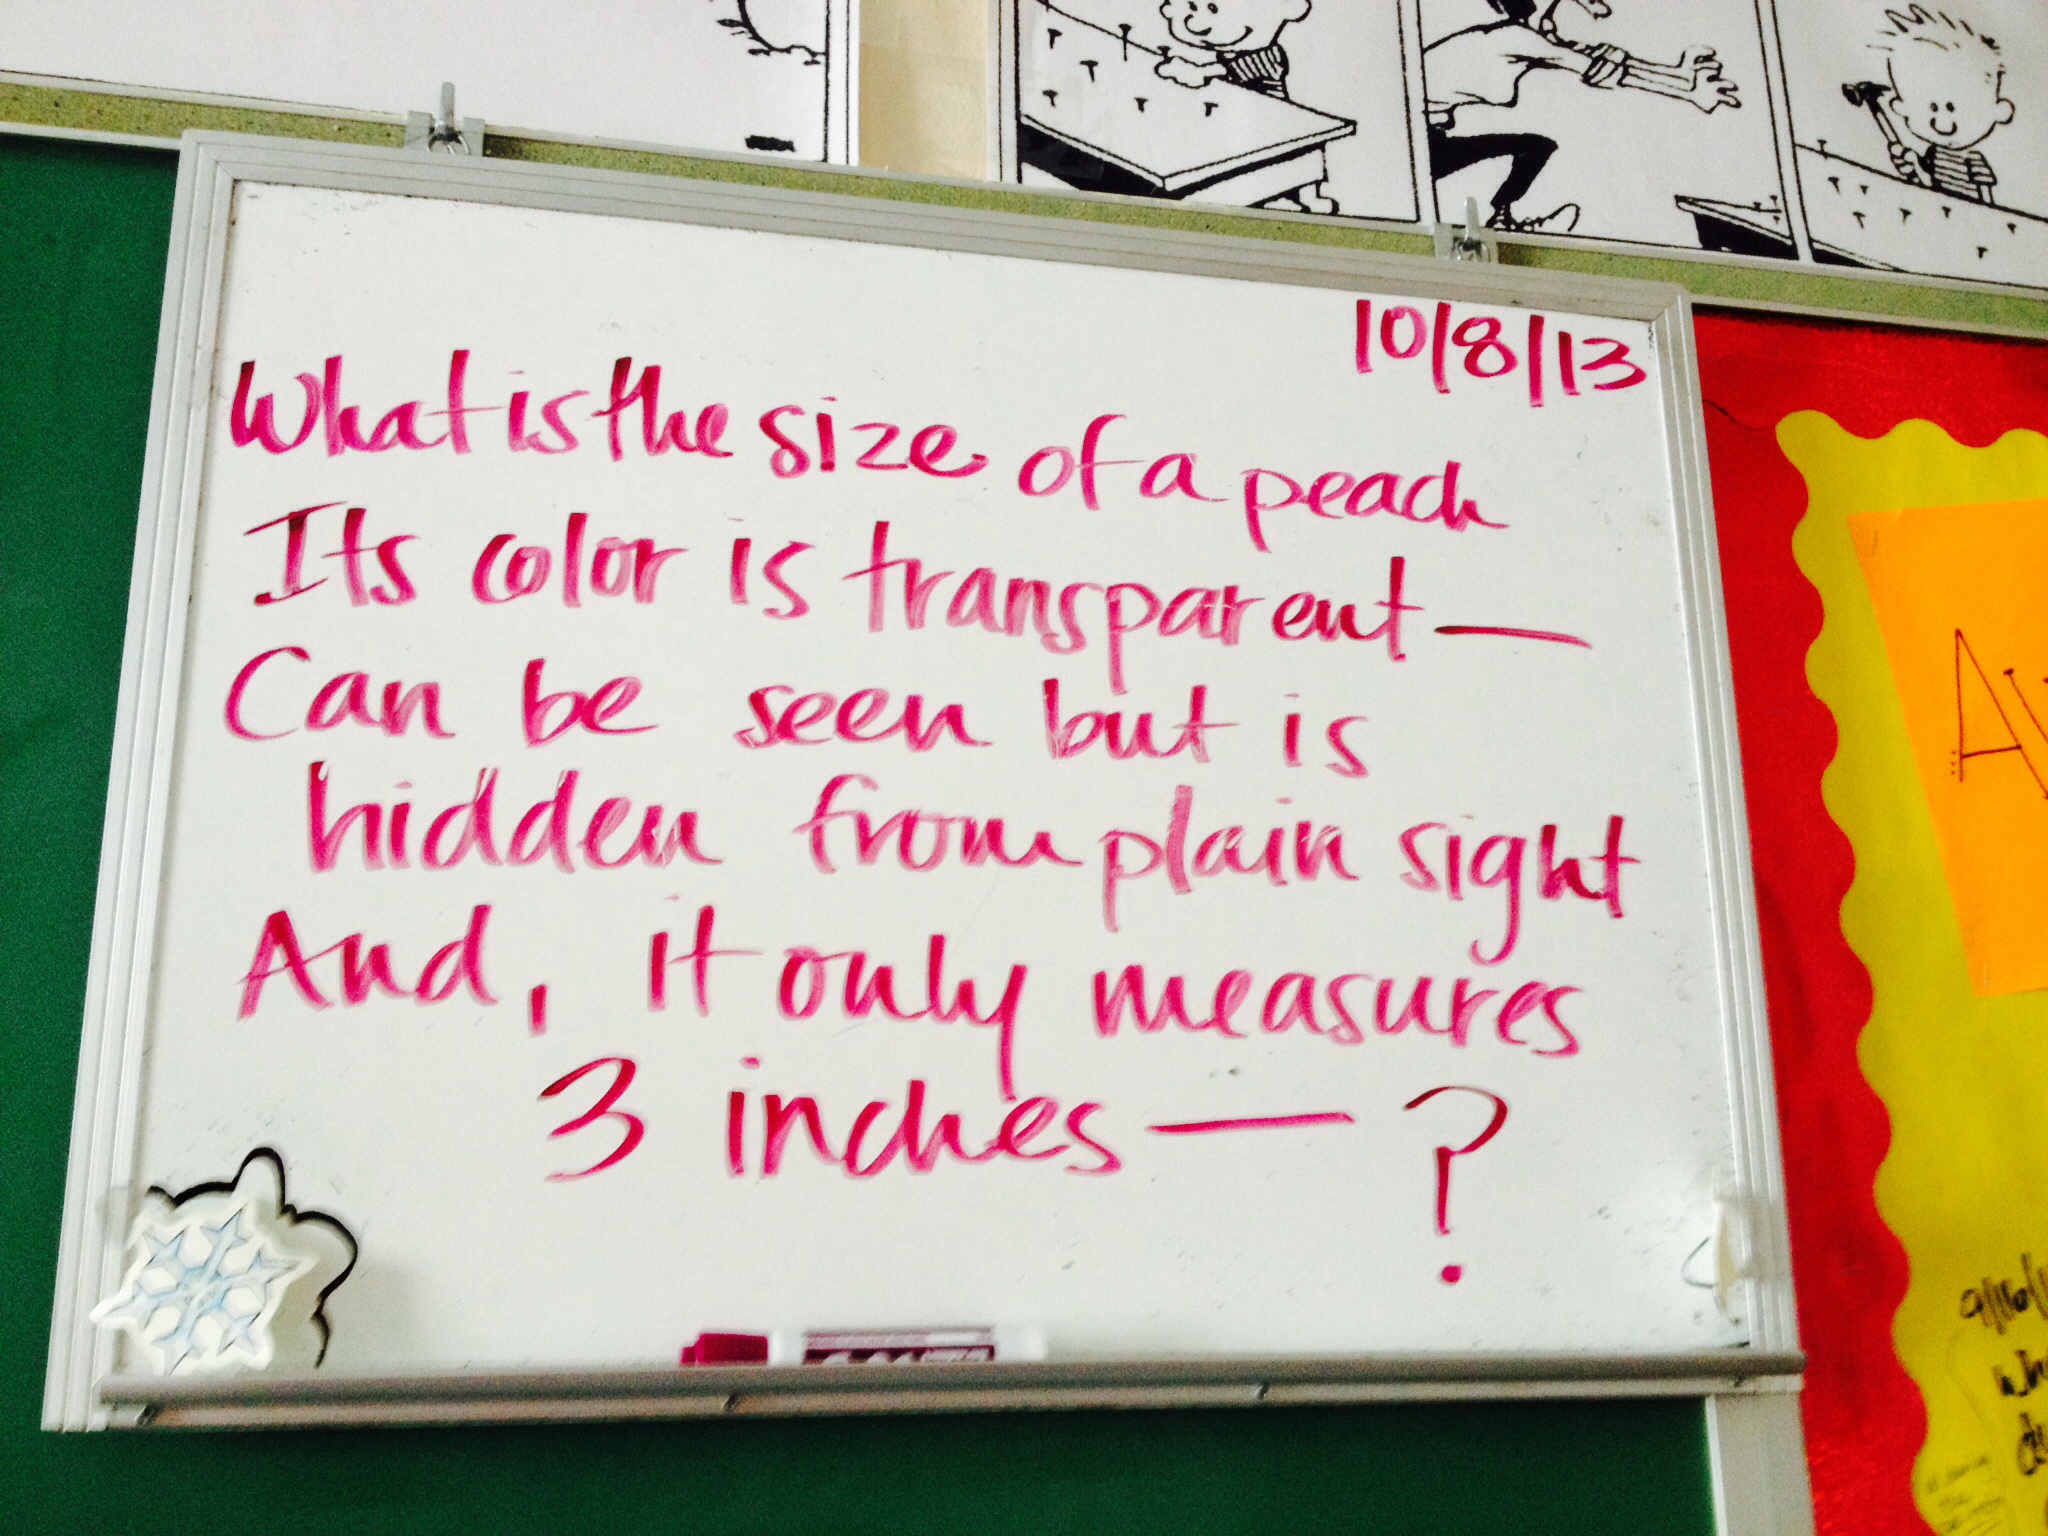 10/8/13
What is the size of a peach
Its color is transparent—
Can be seen but is
hidden from plain sight
And, it only measures
3 inches— ?